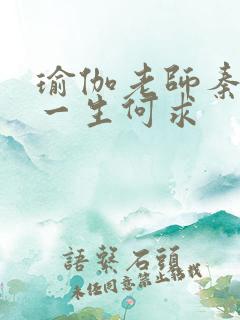 瑜伽老師秦
一生何求
語繫石頭
未經同意禁止轉載